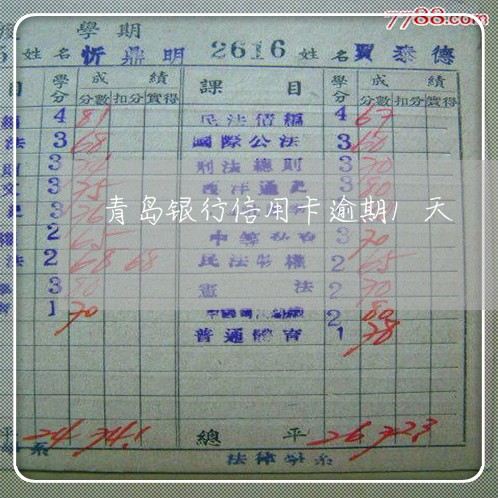 7788.com
學期
5 姓名 忻鼎明 2616 姓名 賈泰德
目 學分 成績 課目 學分 成績
分數 扣分 實得 分數 扣分 實得
4 81 民法債編 4 67
法 3 68 國際公法 3 60
3 刑法總則 3 70
3 75 西洋通史 3 80
青岛银行信用卡逾期1天
2 655 中等 3 70
法 2 68 68 民法物權 2 65
3 80 憲法 2 70
1 70 2 80
普通體育 1 78
平 24 74.1 總平 26 72.3
系 法律學系